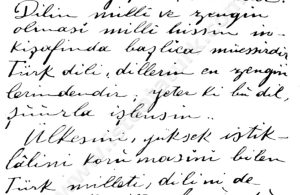 Dilin milli ve zengin
olması milli hissin in-
kişafında başlıca müessirdir.
Türk dili, dillerin en zengin
lerindendir, yeter ki bu dil,
şuurla işlensin..
Ülkesini, yüksek istik-
lâlini korumasını bilen
Türk milleti, dilini de